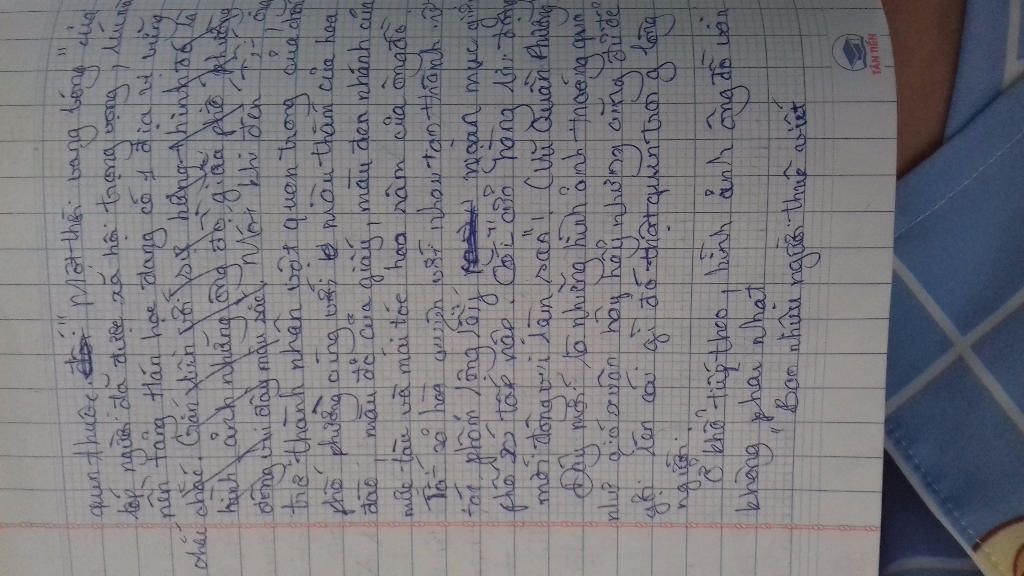 quen thuộc. Một thời vang bóng" của
lớp người đã được xã hội trọng vọng,
nền tảng Hán học đang có 1 địa vị vững
chắc. Gắn liền với sự hưng thịnh đó là
hình ảnh những ông đồ già ở phố phường
đông vui đầy màu sắc. Nói khi đến Tết ông
trở thành nhân vật quan trọng của
phố phường cùng với màu thắm của hoa
đào màu đỏ của giấy, màu đen nhánh của
mực tàu và mái tóc hoa râm của ông đồ.
Tất sả hòa quyện với nhau tạo thành
tác phẩm lộng lẫy
phố xá tấp nập. Cõi còn hàng lũy đông
mới đông vui làm sao! (Vũ Quần Phương)
Đây mới là những hình ảnh thoáng qua
như gió xuân hây hẩy nhưng cũng đủ để
gợi lên cái gì đó trong lòng
người.
Ở khổ tiếp theo, hình ảnh ông đồ vẫn
không phai nhạt
"Bao nhiêu người thuê viết
TÂN TIẾN